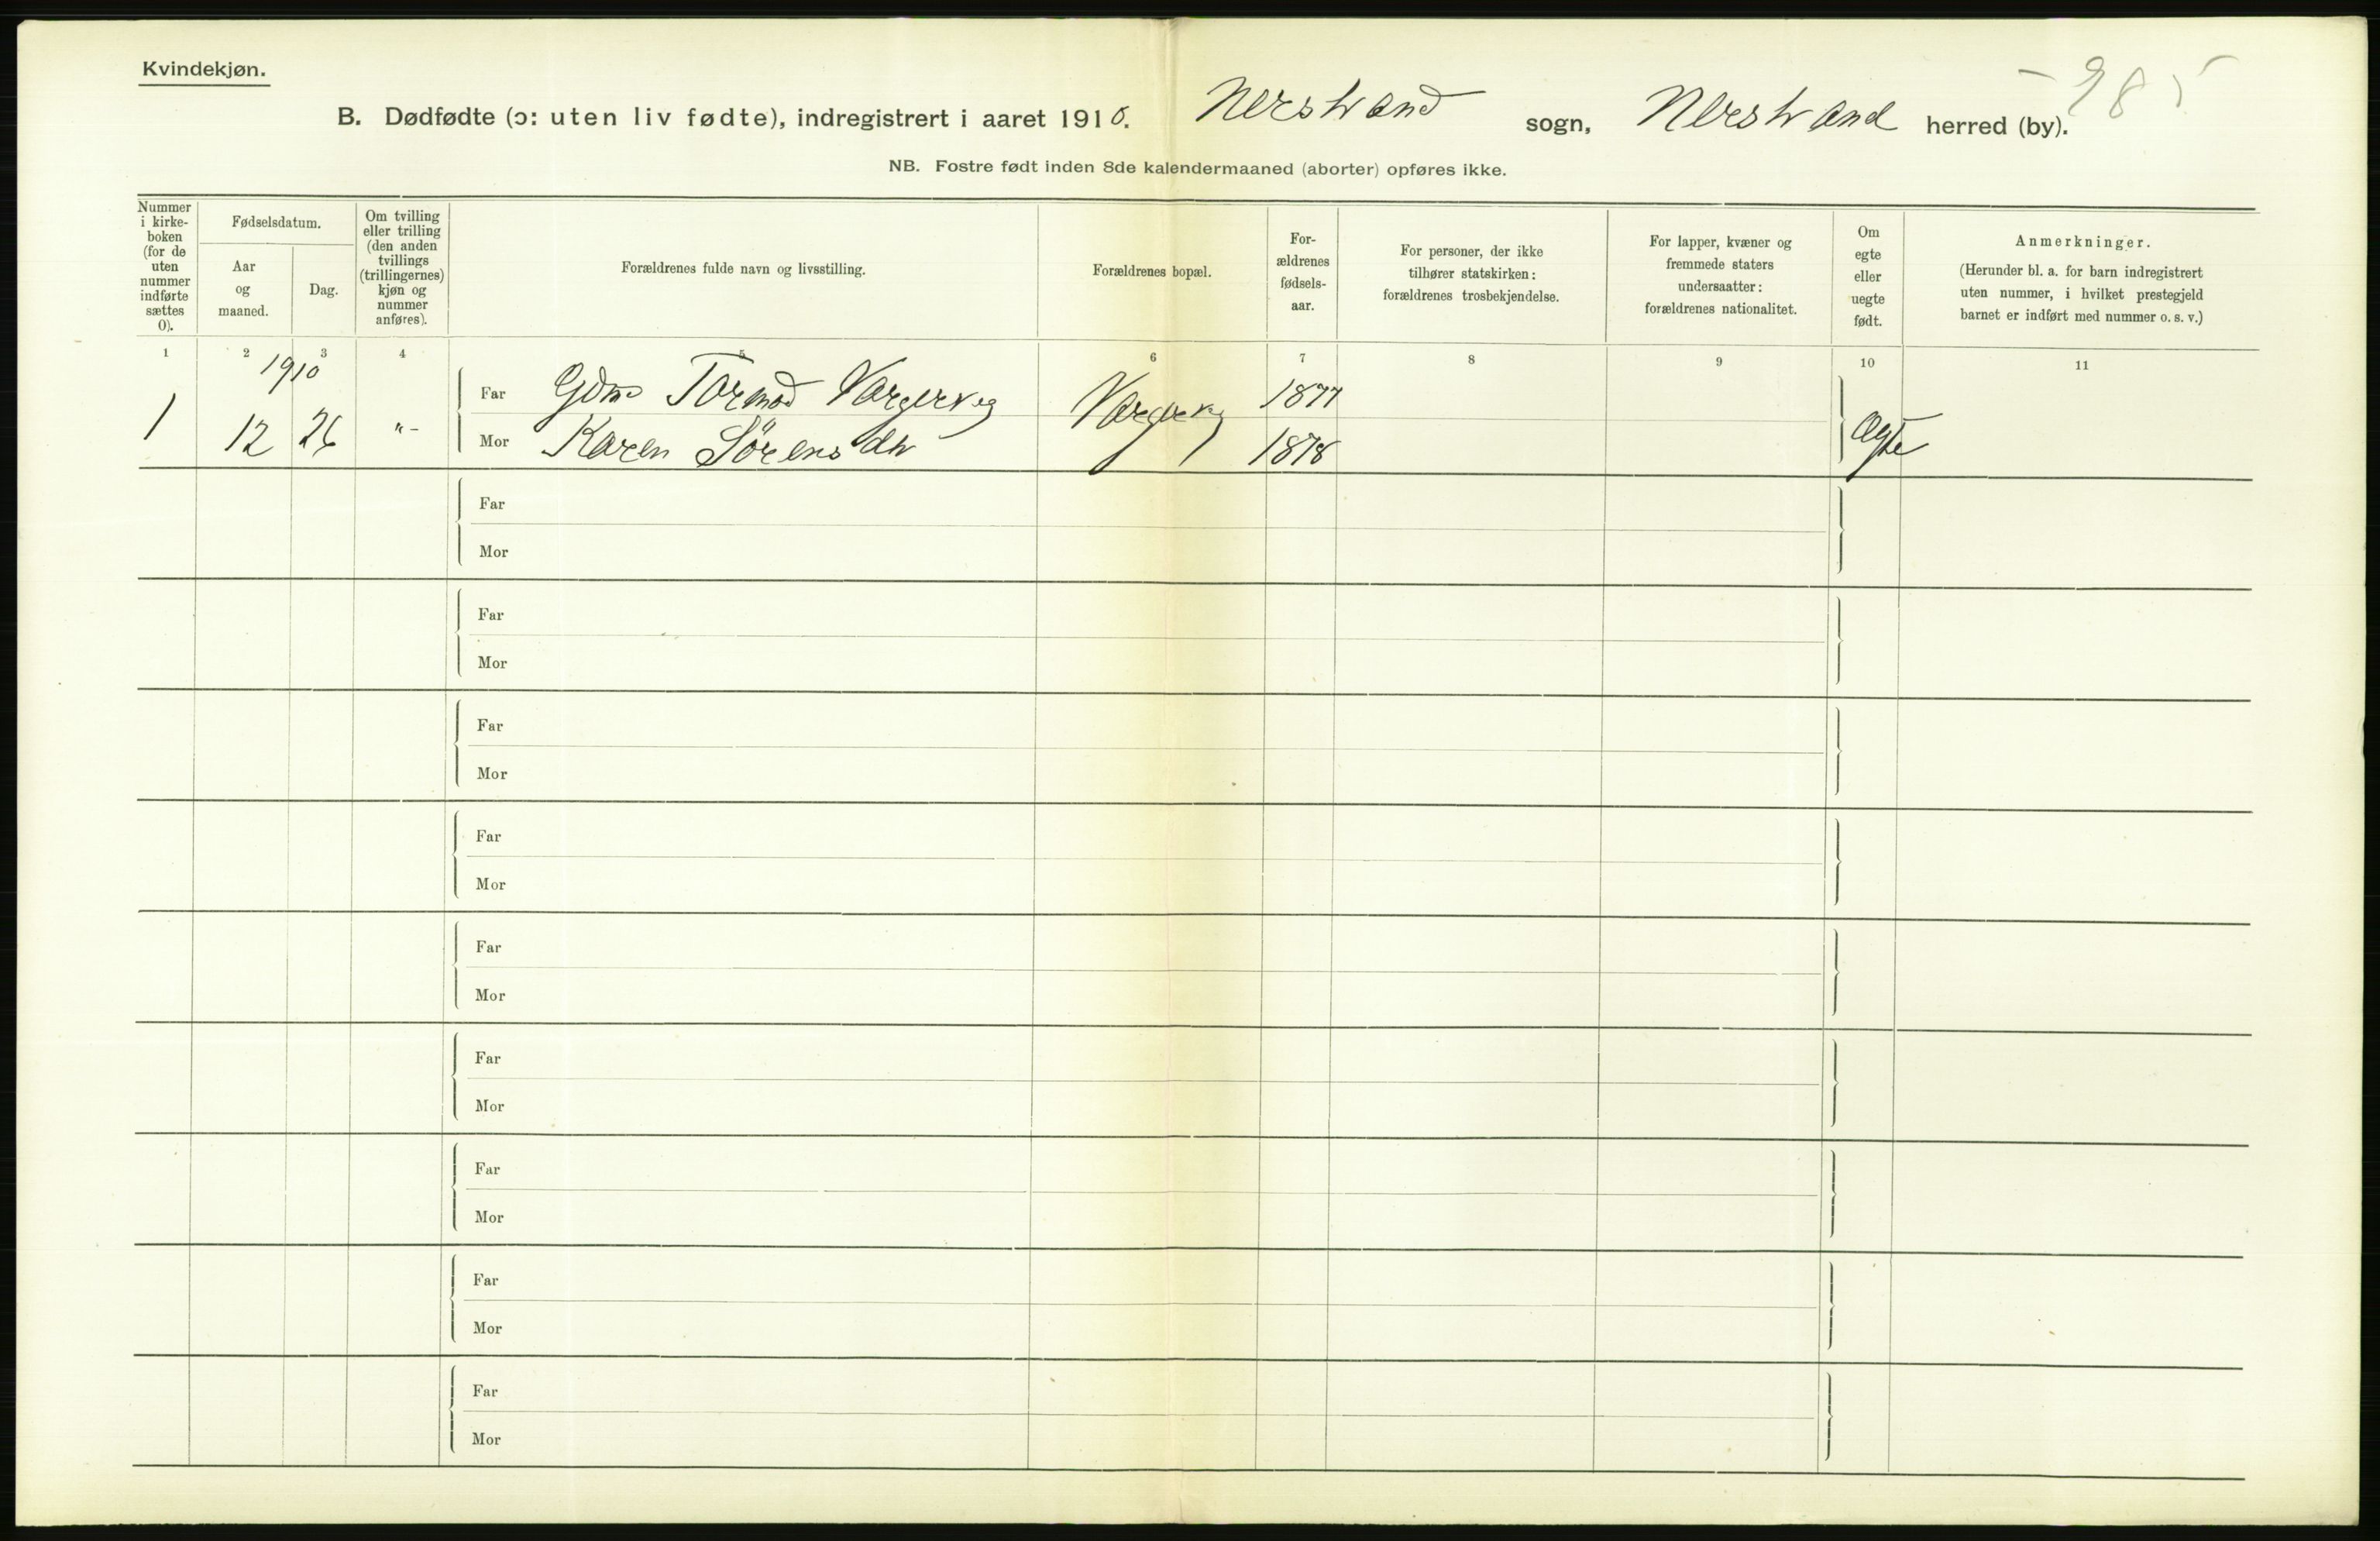 Kvindekjøn.
B. Dødfødte (ɔ: uten liv fødte), indregistrert i aaret 1910. Nerstrand sogn, Nerstrand herred (by). 985
NB. Fostre født inden 8de kalendermaaned (aborter) opføres ikke.
Nummer i kirke-boken (for de uten nummer indførte sættes 0).
Fødselsdatum.
Aar og maaned.
Dag.
Om tvilling eller trilling (den anden tvillings (trillingernes) kjøn og nummer anføres).
Forældrenes fulde navn og livsstilling.
Forældrenes bopæl.
For-ældrenes fødsels-aar.
For personer, der ikke tilhører statskirken: forældrenes trosbekjendelse.
For lapper, kvæner og fremmede staters undersaatter: forældrenes nationalitet.
Om egte eller uegte født.
Anmerkninger.
(Herunder bl. a. for barn indregistrert uten nummer, i hvilket prestegjeld barnet er indført med nummer o. s. v.)
1 2 3 4 5 6 7 8 9 10 11
1910
Far Gdm. Tormod 1877
1 12 26 "- Mor Karen Sørensdtr 1878 Ægte
Far
Mor
Far
Mor
Far
Mor
Far
Mor
Far
Mor
Far
Mor
Far
Mor
Far
Mor
Far
Mor